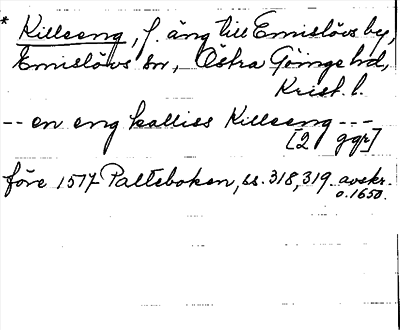 * Killeeng, f. äng till Emislövs by,
Emislövs sn, Östra Göinge hd,
Krist. l.
-- en eng kalliss Killeeng ---
[2 ggr]
före 1517 Palteboken, ss. 318, 319. avskr.
o. 1650.